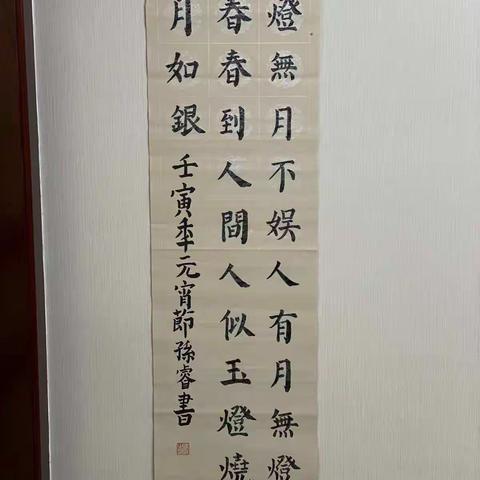 燈無月不娛人有月無燈
春春到人間人似玉燈燒
月如銀
壬寅秊元宵節孫睿書